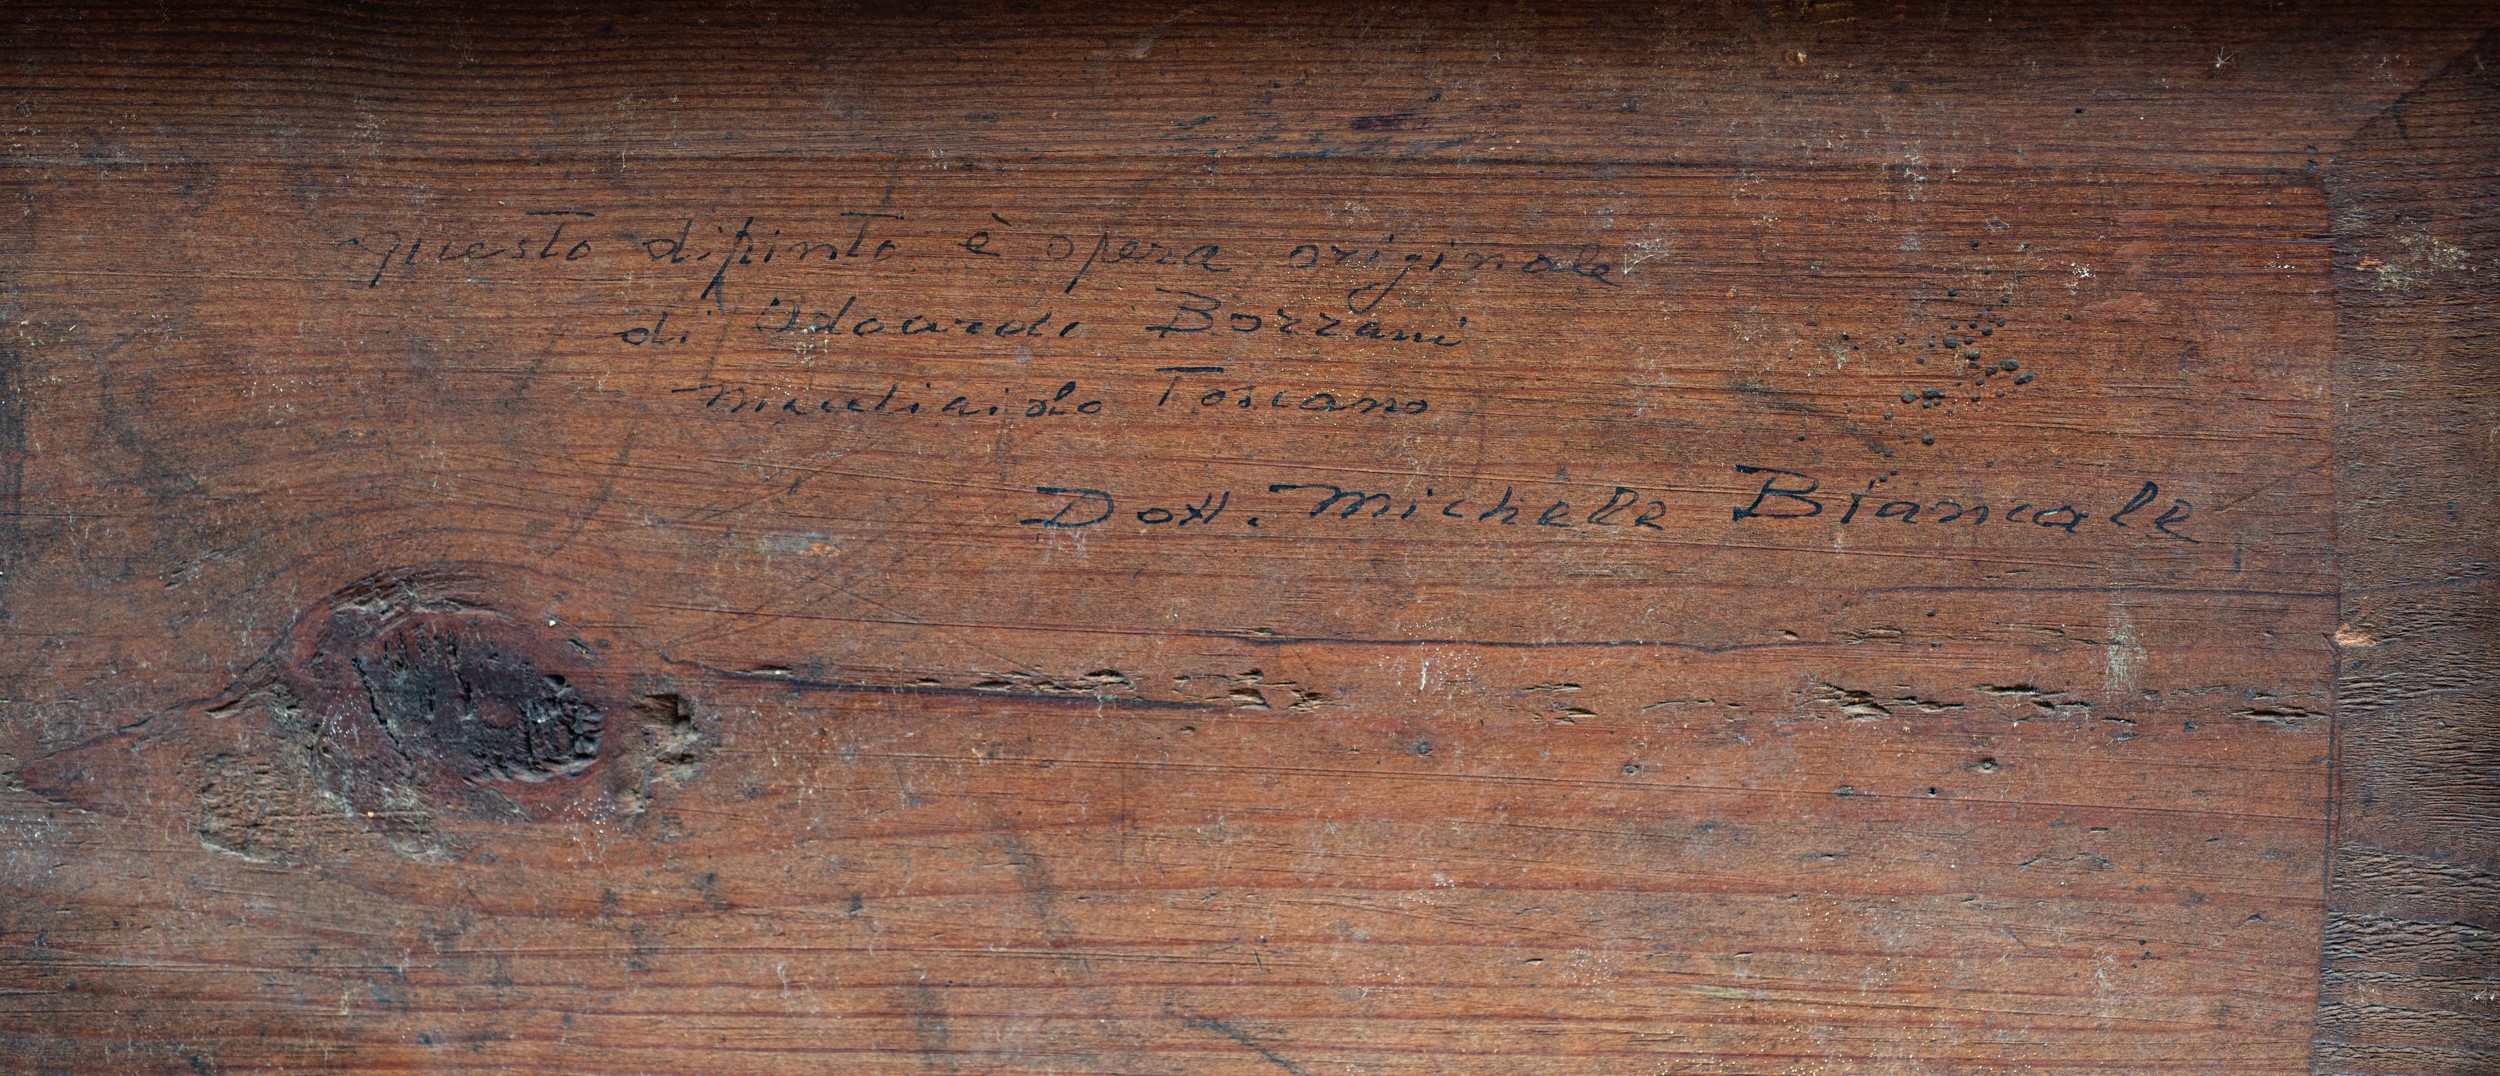 questo dipinto è opera originale
di Odoardo Borrani
macchiaiolo Toscano
Dott. Michele Biancale